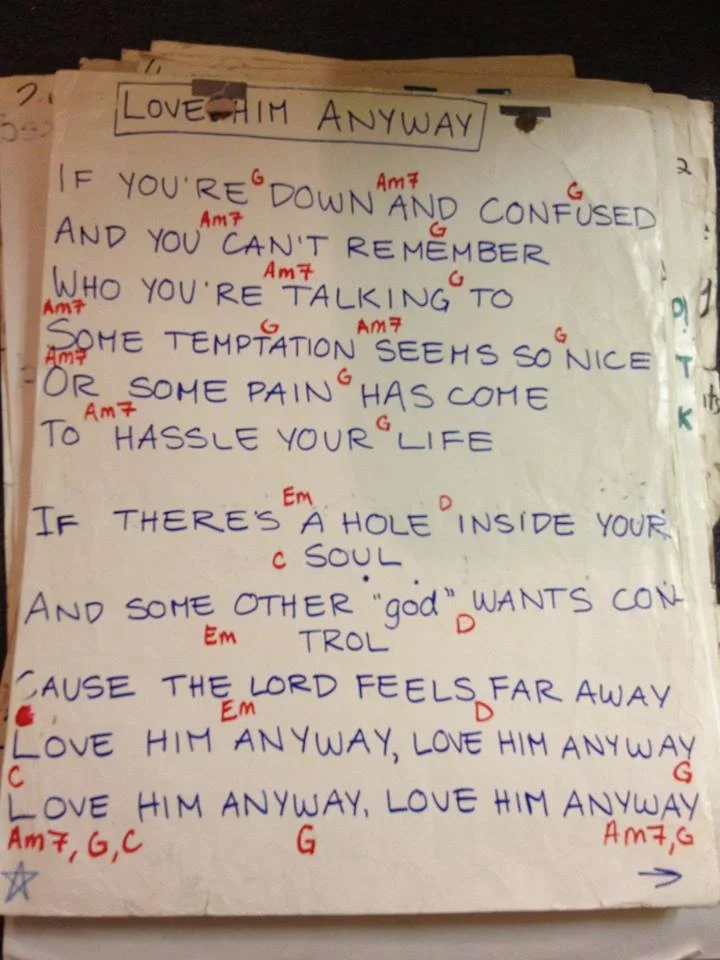 LOVE HIM ANYWAY
G Am7 G
IF YOU'RE DOWN AND CONFUSED
Am7 G
AND YOU CAN'T REMEMBER
Am7 G
WHO YOU'RE TALKING TO
Am7 G Am7 G
SOME TEMPTATION SEEMS SO NICE
Am7 G
OR SOME PAIN HAS COME
Am7 G
TO HASSLE YOUR LIFE
Em D
IF THERE'S A HOLE INSIDE YOUR
C SOUL
AND SOME OTHER "god" WANTS CON-
Em TROL D
CAUSE THE LORD FEELS FAR AWAY
Em D
LOVE HIM ANYWAY, LOVE HIM ANYWAY
C G
LOVE HIM ANYWAY, LOVE HIM ANYWAY
Am7, G, C G Am7, G
2
D!
T
K